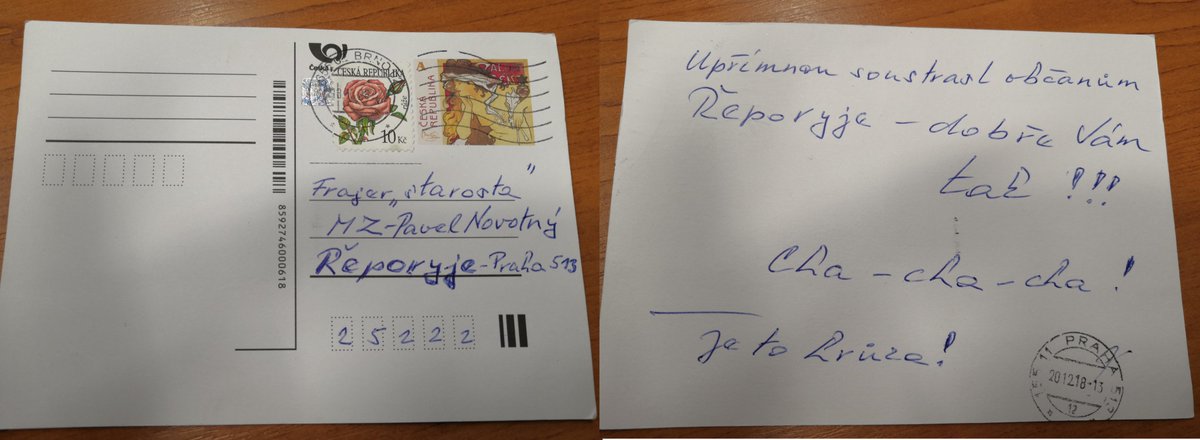 BRNO
ČESKÁ REPUBLIKA
10 Kč
A
ČESKÁ REPUBLIKA
Frajer „starosta"
MZ-Pavel Novotný
Řeporyje-Praha 513
25222
8592746000618
Upřímnou soustrast občanům
Řeporyje - dobře Vám
tak !!!
Cha - cha - cha !
Je to hrůza!
PRAHA 513
20.12.18-13
12